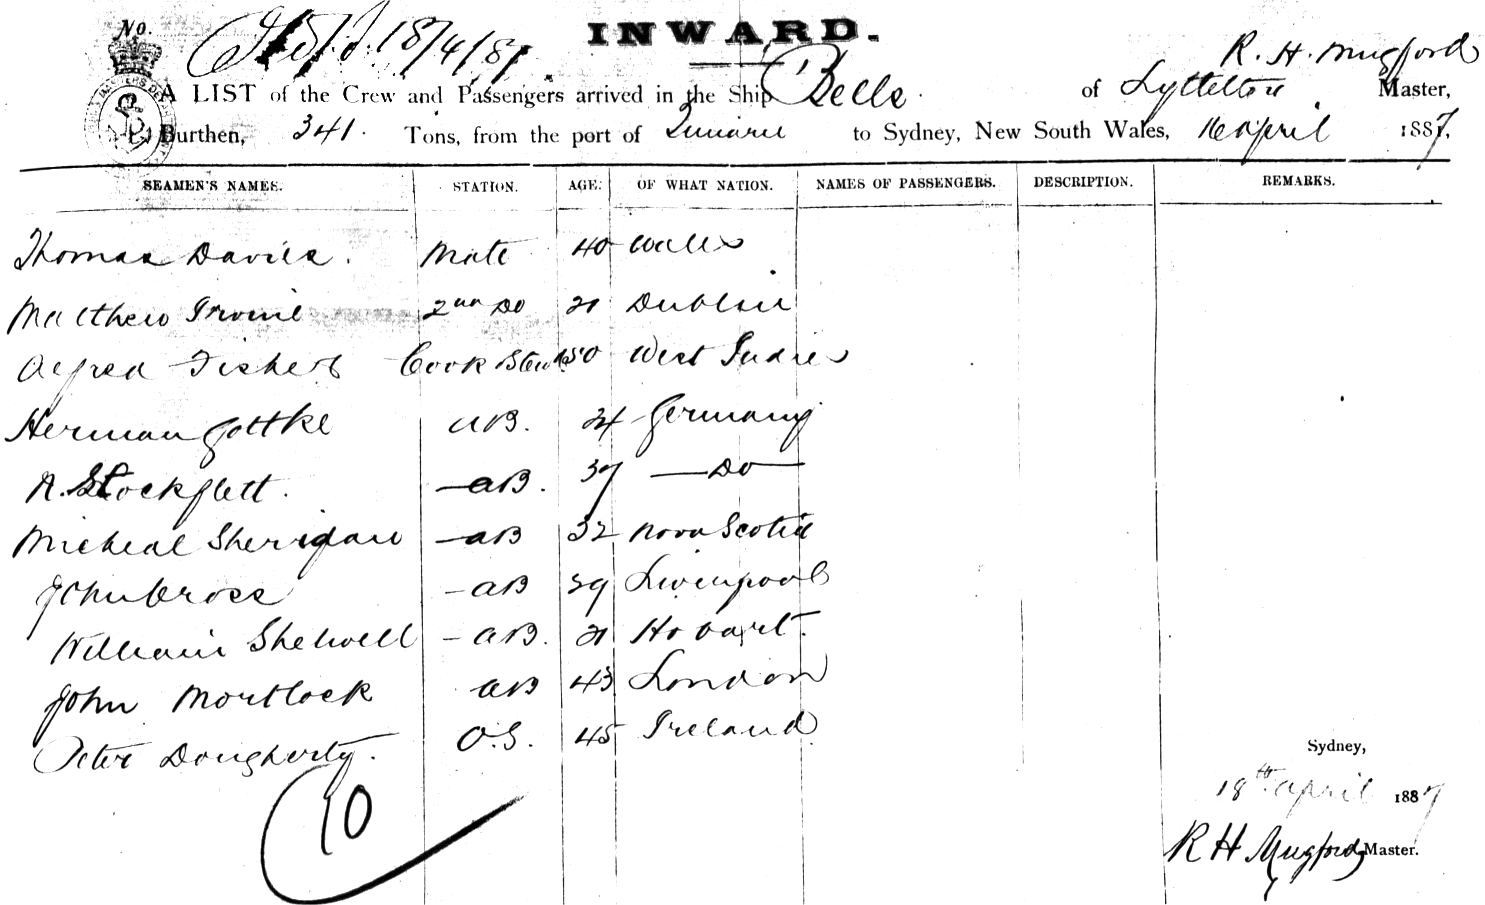 No.
INWARD.
18/4/87
R. H. Mugford
A LIST of the Crew and Passengers arrived in the Ship Bells of Lyttelton Master,
Burthen, 341 Tons, from the port of to Sydney, New South Wales, 16 April 1887,
SEAMEN'S NAMES. STATION. AGE. OF WHAT NATION. NAMES OF PASSENGERS. DESCRIPTION. REMARKS.
Thomas Davies. Mate 40 Wales
Matthew Irvine 2nd Do 21 Dublin
Alfred Fisher Cook Stewd 50 West Indies
Herman Gottke AB. 24 Germany
N. Stockflett. AB. 37 Do
Micheal Sherridan AB 32 Nova Scotia
John Cross AB 29 Liverpool
William Shelwell AB. 21 Hobart.
John Mortlock AB 43 London
Peter Dougherty. O.S. 45 Ireland
10
Sydney,
18th April 1887
R H Mugford Master.